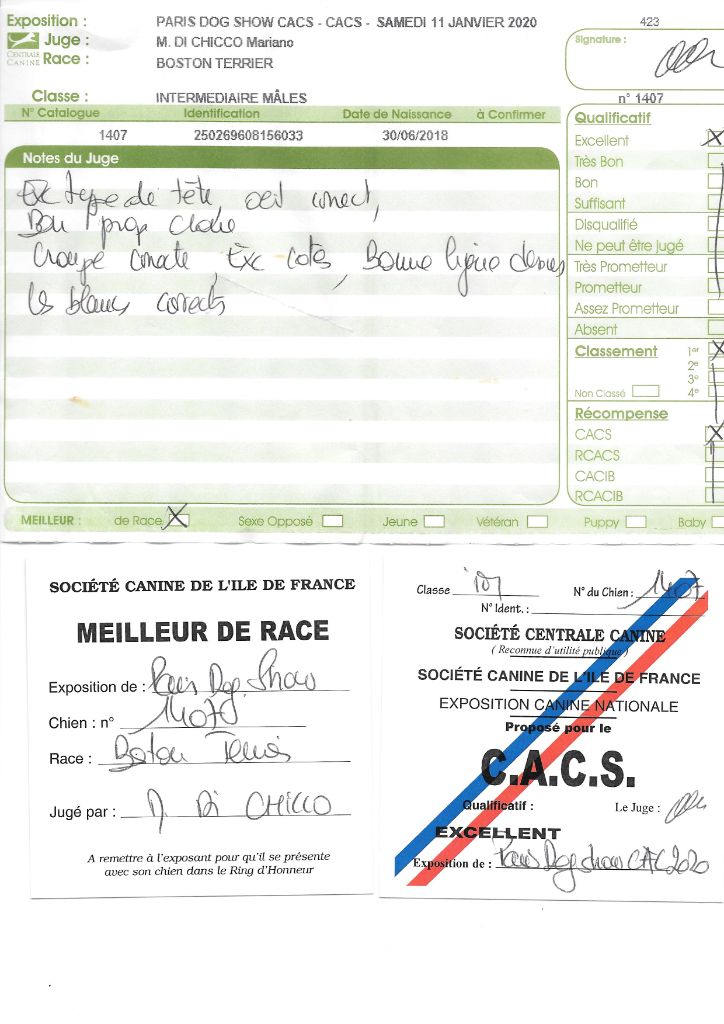 Exposition : PARIS DOG SHOW CACS - CACS - SAMEDI 11 JANVIER 2020 423
Juge : M. DI CHICCO Mariano Signature :
CENTRALE CANINE Race : BOSTON TERRIER
Classe : INTERMEDIAIRE MÂLES n° 1407
N° Catalogue Identification Date de Naissance à Confirmer
1407 250269608156033 30/06/2018
Notes du Juge
Exc type de tête, oeil correct,
Bon prop
Croupe correcte, Exc cotes, Bonne ligne dessus
les blancs corrects
Qualificatif
Excellent X
Très Bon
Bon
Suffisant
Disqualifié
Ne peut être jugé
Très Prometteur
Prometteur
Assez Prometteur
Absent
Classement 1er X
2e
3e
Non Classé 4e
Récompense
CACS X
RCACS
CACIB
RCACIB
MEILLEUR : de Race X Sexe Opposé Jeune Vétéran Puppy Baby
SOCIÉTÉ CANINE DE L'ILE DE FRANCE
MEILLEUR DE RACE
Exposition de : Paris Dog Show
Chien : n° 1407
Race : Boston Terrier
Jugé par : M Di CHICCO
A remettre à l'exposant pour qu'il se présente
avec son chien dans le Ring d'Honneur
Classe N° du Chien : 1407
N° Ident. :
SOCIÉTÉ CENTRALE CANINE
( Reconnue d'utilité publique )
SOCIÉTÉ CANINE DE L'ILE DE FRANCE
EXPOSITION CANINE NATIONALE
Proposé pour le
C.A.C.S.
Qualificatif : Le Juge :
EXCELLENT
Exposition de : Paris Dog Show CAC 2020